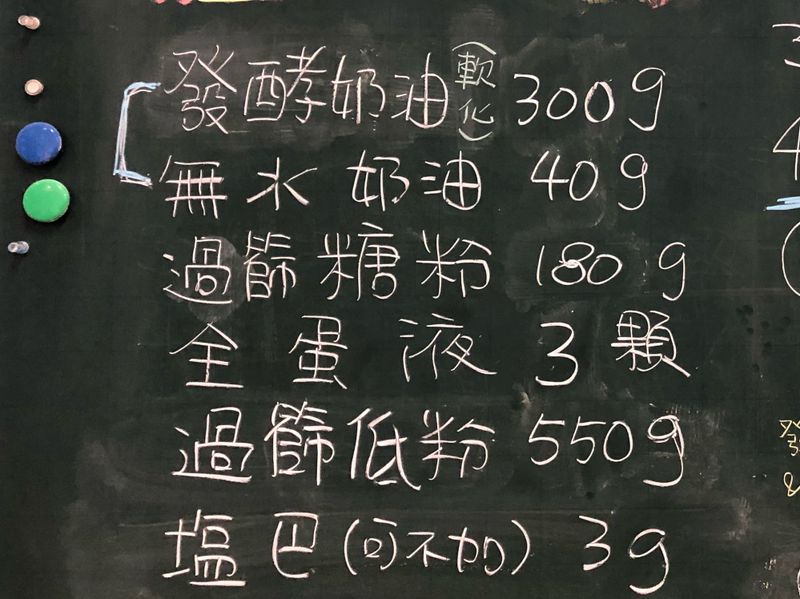 發酵奶油(軟化) 300g
無水奶油 40g
過篩糖粉 180g
全蛋液 3顆
過篩低粉 550g
塩巴(可不加) 3g